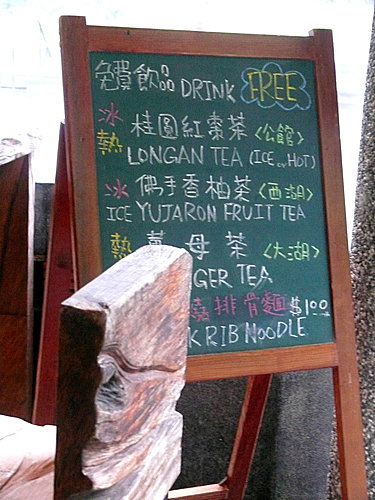 免費飲品 DRINK FREE
冰 桂圓紅棗茶 <公館>
熱 LONGAN TEA (ICE or HOT)
冰 佛手香柚茶 <西湖>
ICE YUJARON FRUIT TEA
熱 薑母茶 <大湖>
GER TEA
燒排骨麵 $100
K RIB NOODLE